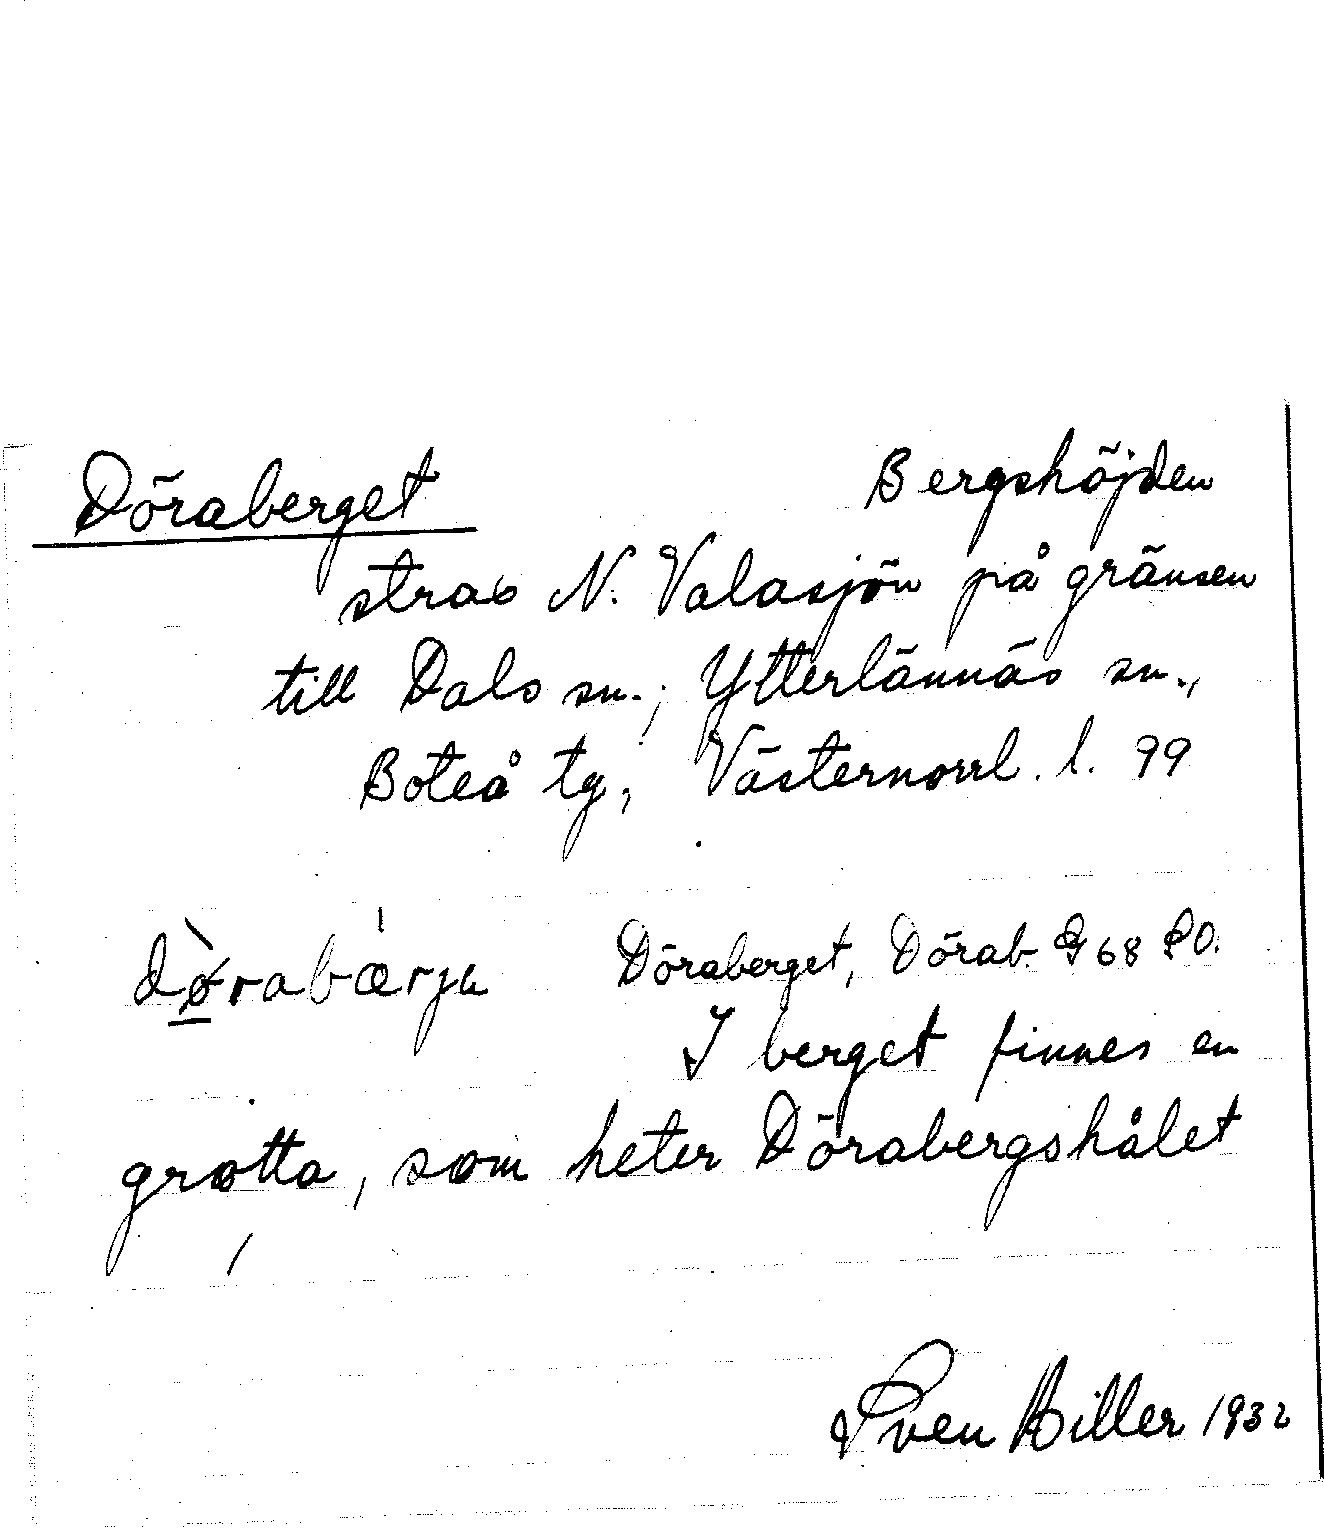 Döraberget Bergshöjden
strax N. Valasjön på gränsen
till Dals sn.; Ytterlännäs sn.,
Boteå tg, Västernorrl. l. 99
dø̀rabærja Döraberget, Dörab. G 68 SO.
I berget finnes en
grotta, som heter Dörabergshålet
Sven Hiller 1932